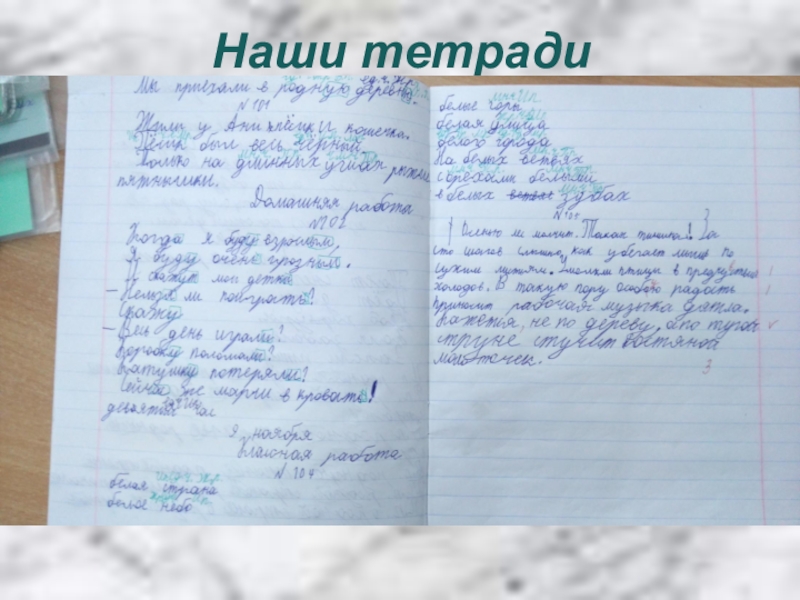 Наши тетради
Мы приехали в родную деревню.
№ 101
Жили у Ани и кошечка.
был весь чёрный
Только на длинных ушах рыжие
пятнышки.
Домашняя работа
№ 02
Когда я буду взрослым,
Я буду очень грозным.
И скажут мои детки
– Нельзя ли поиграть?
Скажу
– Весь день играли!
Коробки поломали!
Катушки потеряли!
Сейчас же марш в кровать!
девятый час
9 ноября
Классная работа
№ 104
белая страна
белое небо
белые горы
белая улица
белого города
На белых ветвях
с орехами белыми
в белых зубах
Осенью лес молчит. Такая тишина! За
сто шагов слышно, как убегает мышь по
сухим листьям. Умолкли птицы в предчувствии
холодов. В такую пору особою радость
приносит рабочая музыка дятла.
Кажется, не по дереву, а по тугой
струне стучит костяной
молоточек.
3